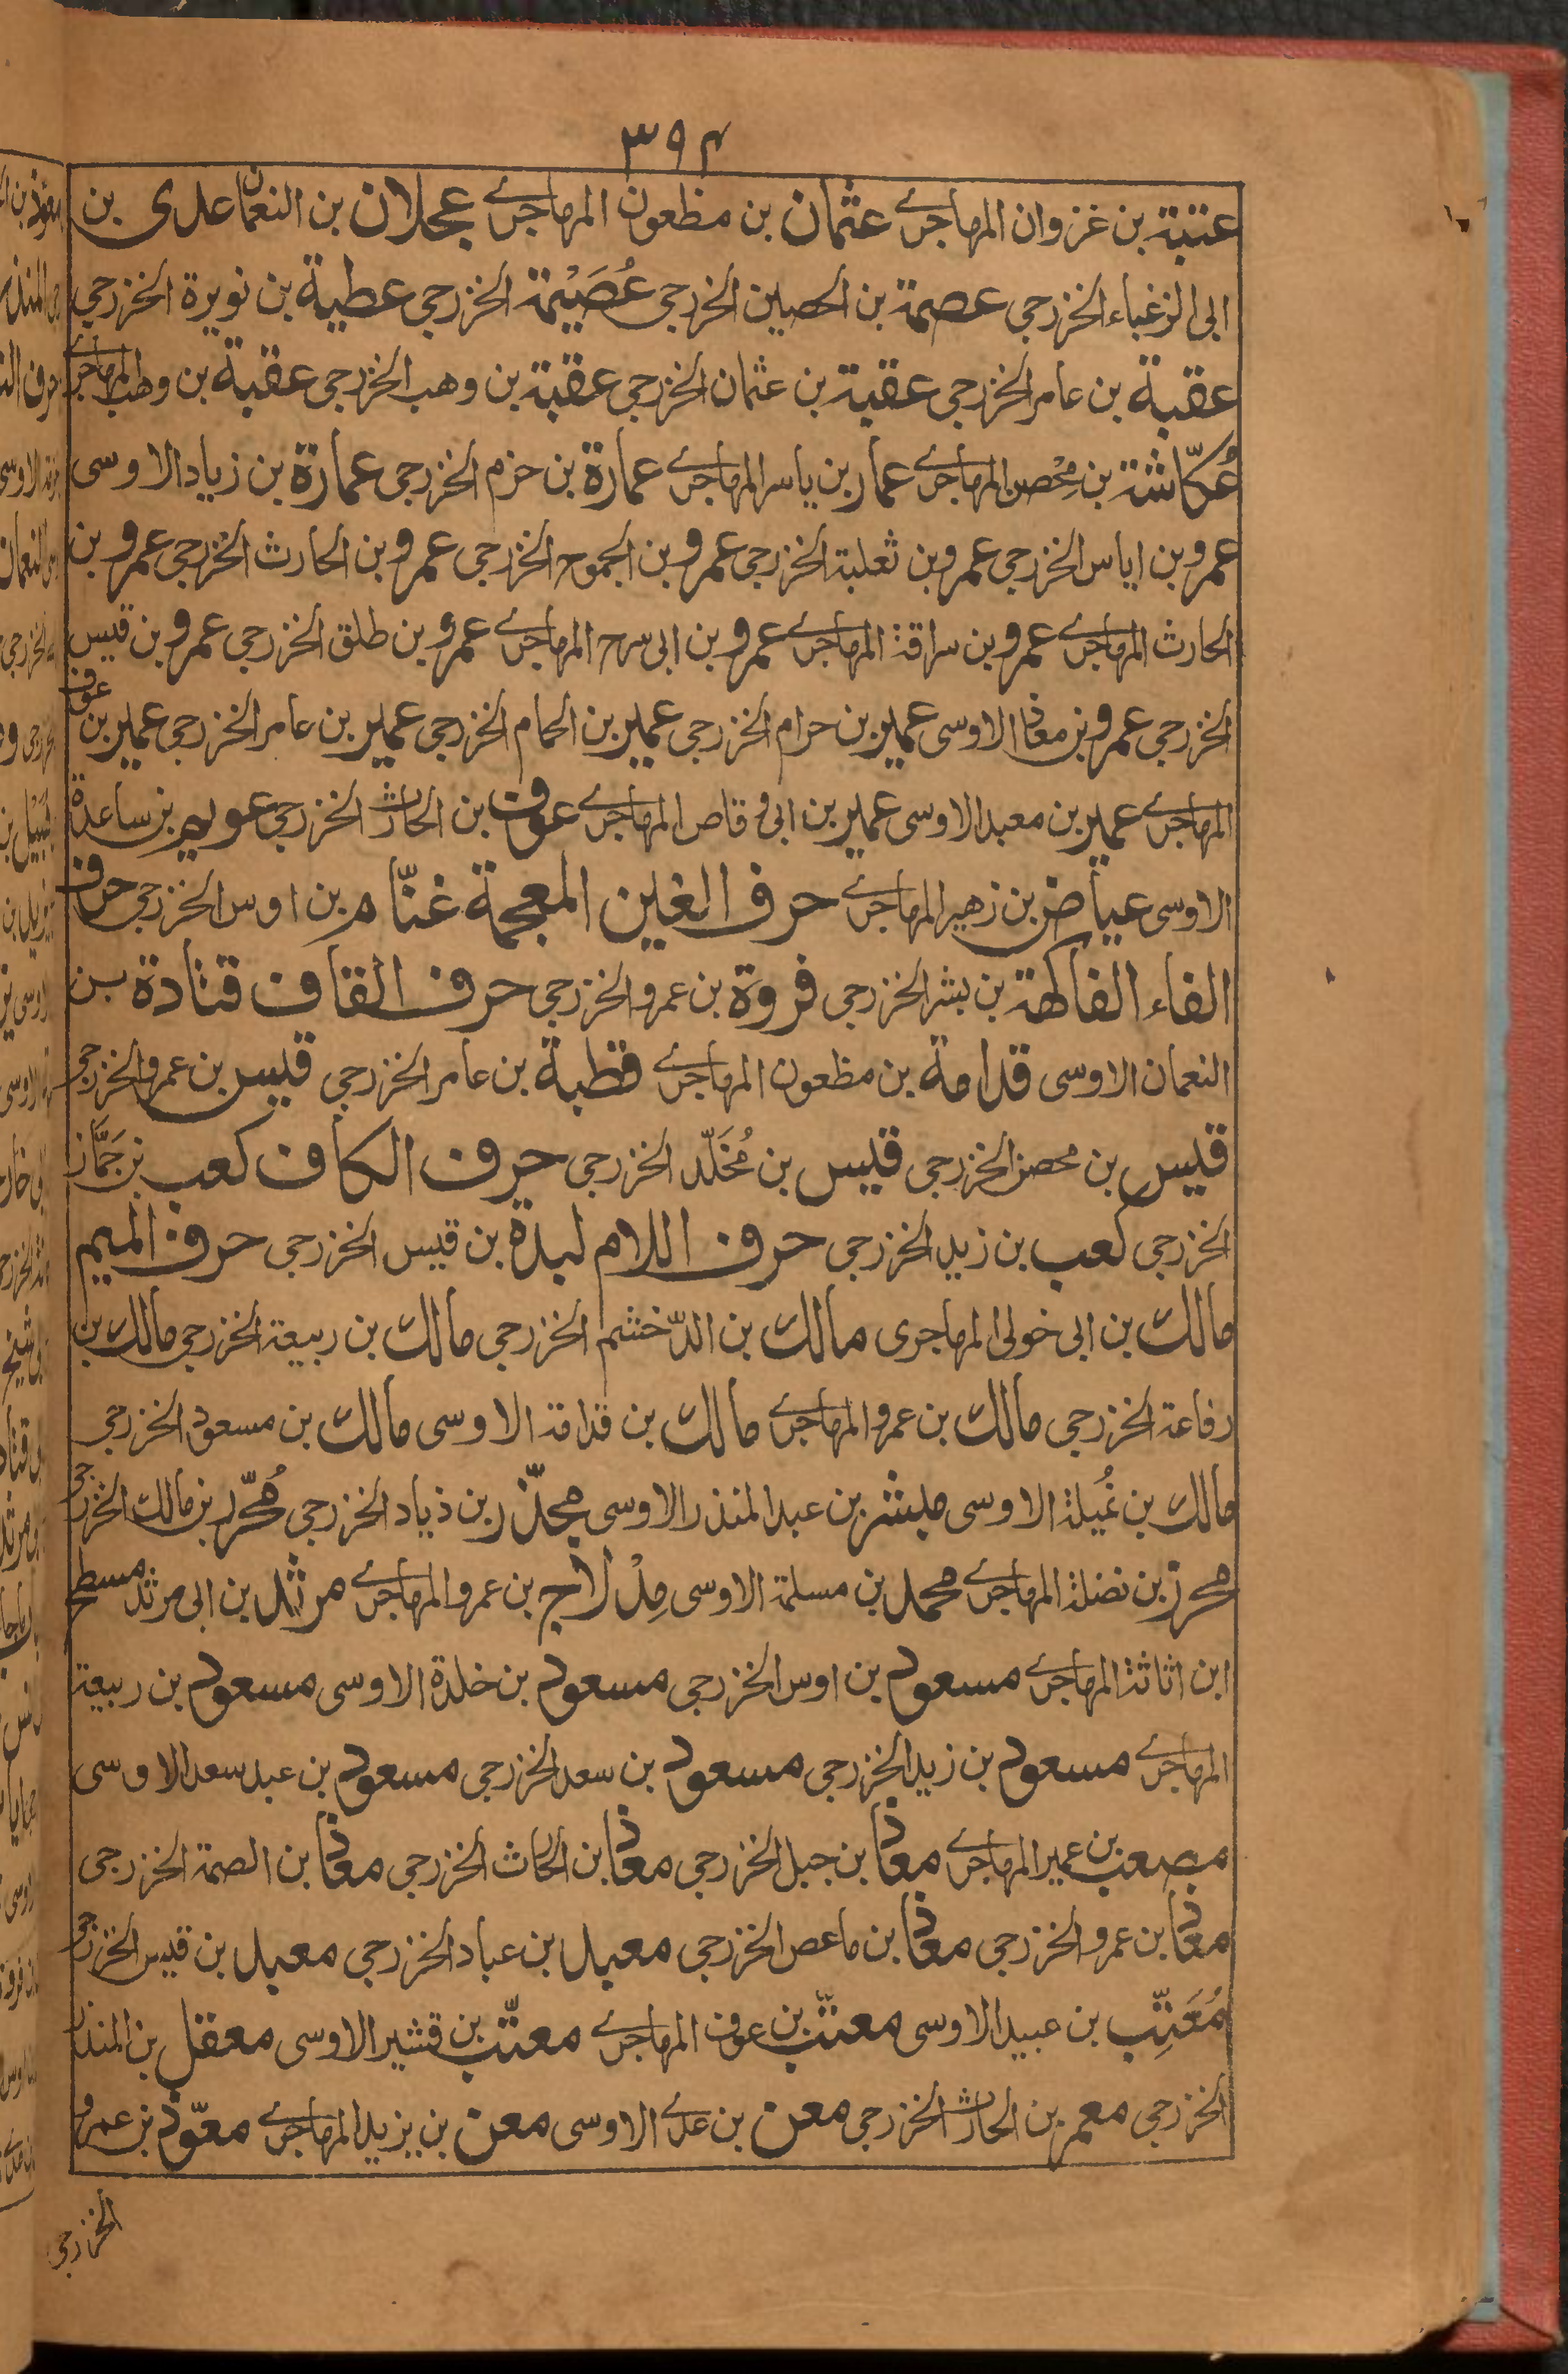 ٣٩٤
عتبة بن غزوان المهاجرے عثمان بن مظعون المهاجرے عجلان بن النعمان عدی بن
ابی الزغباء الخزرجی عصمة بن الحصین الخزرجی عُصَیْمة الخزرجی عطیة بن نویرة الخزرجی
عقبة بن عامر الخزرجی عقبة بن عثمان الخزرجی عقبة بن وهب الخزرجی عقبة بن وهب المهاجرے
عُكّاشة بن مِحْصن المهاجرے عمار بن یاسر المهاجرے عمارة بن حزم الخزرجی عمارة بن زیاد الاوسی
عمرو بن ایاس الخزرجی عمرو بن ثعلبة الخزرجی عمرو بن الجموح الخزرجی عمرو بن الحارث الخزرجی عمرو بن
الحارث المهاجرے عمرو بن سراقة المهاجرے عمرو بن ابی سرح المهاجرے عمرو بن طلق الخزرجی عمرو بن قیس
الخزرجی عمرو بن معاذ الاوسی عمیر بن حرام الخزرجی عمیر بن الحمام الخزرجی عمیر بن عامر الخزرجی عمیر بن عوف
المهاجرے عمیر بن معبد الاوسی عمیر بن ابی وقاص المهاجرے عوف بن الحارث الخزرجی عویم بن ساعدة
الاوسی عیاض بن زهیر المهاجرے حرف الغین المعجمة غنّام بن اوس الخزرجی حرف
الفاء الفاكهة بن بشر الخزرجی فروة بن عمرو الخزرجی حرف القاف قتادة بن
النعمان الاوسی قدامة بن مظعون المهاجرے قطبة بن عامر الخزرجی قیس بن عمرو الخزرجی
قیس بن محصن الخزرجی قیس بن مُخَلّد الخزرجی حرف الكاف كعب بن جَمَّاز
الخزرجی كعب بن زید الخزرجی حرف اللام لبدة بن قیس الخزرجی حرف المیم
مالك بن ابی خولی المهاجری مالك بن الدّخشم الخزرجی مالك بن ربیعة الخزرجی مالك بن
رفاعة الخزرجی مالك بن عمرو المهاجرے مالك بن قدامة الاوسی مالك بن مسعود الخزرجی
مالك بن نُمیلة الاوسی مبشر بن عبد المنذر الاوسی مجذّر بن ذیاد الخزرجی مُحرّر بن مالك الخزرجی
محرز بن نضلة المهاجرے محمد بن مسلمة الاوسی مِدْلاج بن عمرو المهاجرے مرثد بن ابی مرثد مسطح
ابن اثاثة المهاجرے مسعود بن اوس الخزرجی مسعود بن خلدة الاوسی مسعود بن ربیعة
المهاجرے مسعود بن زید الخزرجی مسعود بن سعد الخزرجی مسعود بن عبد سعد الاوسی
مصعب بن عمیر المهاجرے معاذ بن جبل الخزرجی معاذ بن الحارث الخزرجی معاذ بن الصمة الخزرجی
معاذ بن عمرو الخزرجی معاذ بن ماعص الخزرجی معبد بن عباد الخزرجی معبد بن قیس الخزرجی
مُعَتِّب بن عبید الاوسی معتّب بن عوف المهاجرے معتّب بن قشیر الاوسی معقل بن المنذر
الخزرجی معمر بن الحارث الخزرجی معن بن عدے الاوسی معن بن یزید المهاجرے معوّذ بن عمرو
الخزرجی